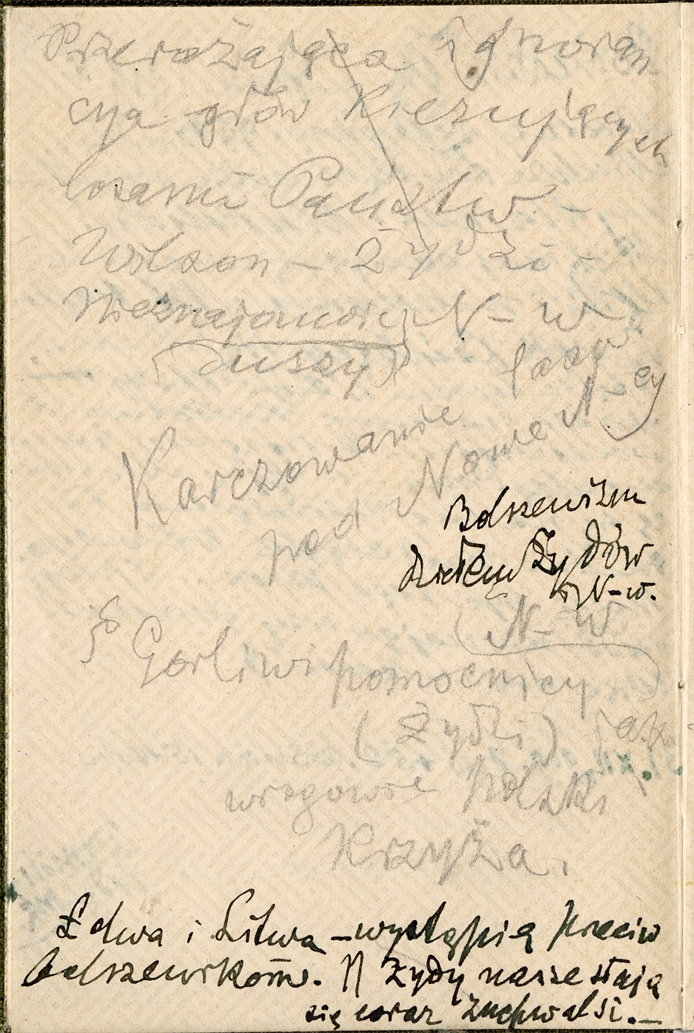 Przerażająca Ignoran
cya głów kierujących
losami Państw –
Wilson – Żydzi –
Nieznajomość N–w
(duszy)
Karczowanie lasów
pod Nowe
Bolszewizm
dziełem Żydów
i N–w.
N–w
Gorliwi pomocnicy
(Żydzi) jako
wrogowie Polski
Krzyża.
Łotwa i Litwa – wystąpią przeciw
bolszewikom. Żydy nasze stają
się coraz zuchwalsi. –